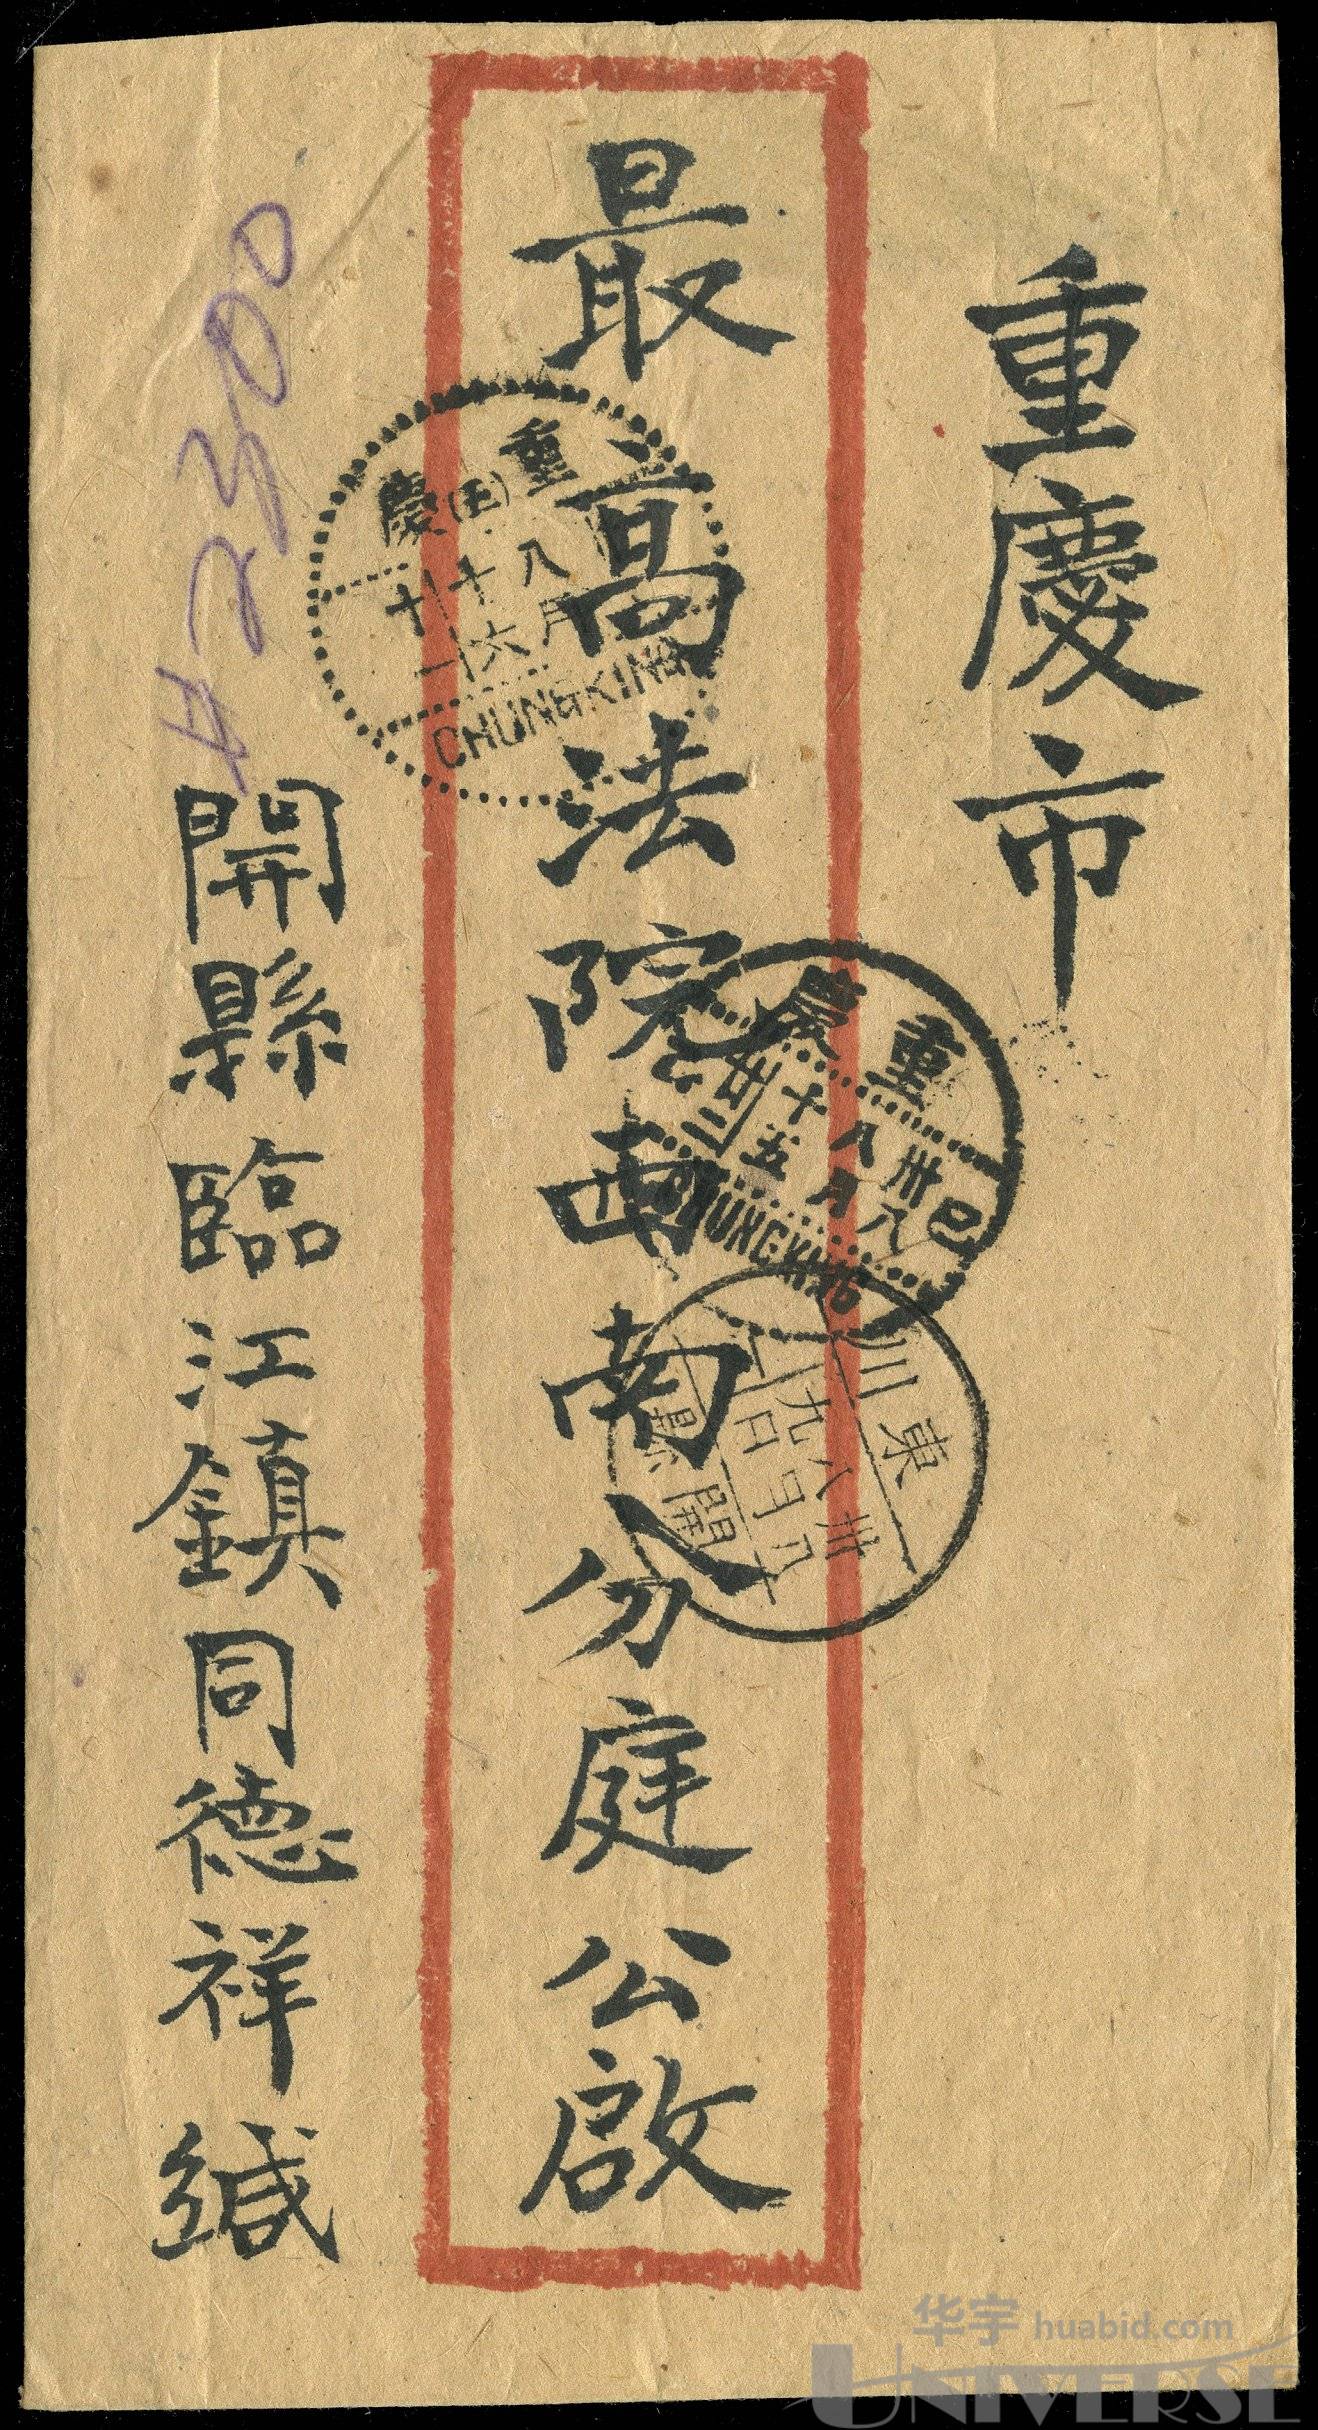 重慶市
最高法院西南分庭公啟
開縣臨江鎮同德祥緘
#2300
重(五)慶
八月
十六
十一
CHUNGKING
重慶
卅八
八月
十五
廿二
CHUNGKING
東川
卅八
八月
九日
開縣
华宇 huabid.com
UNIVERSE